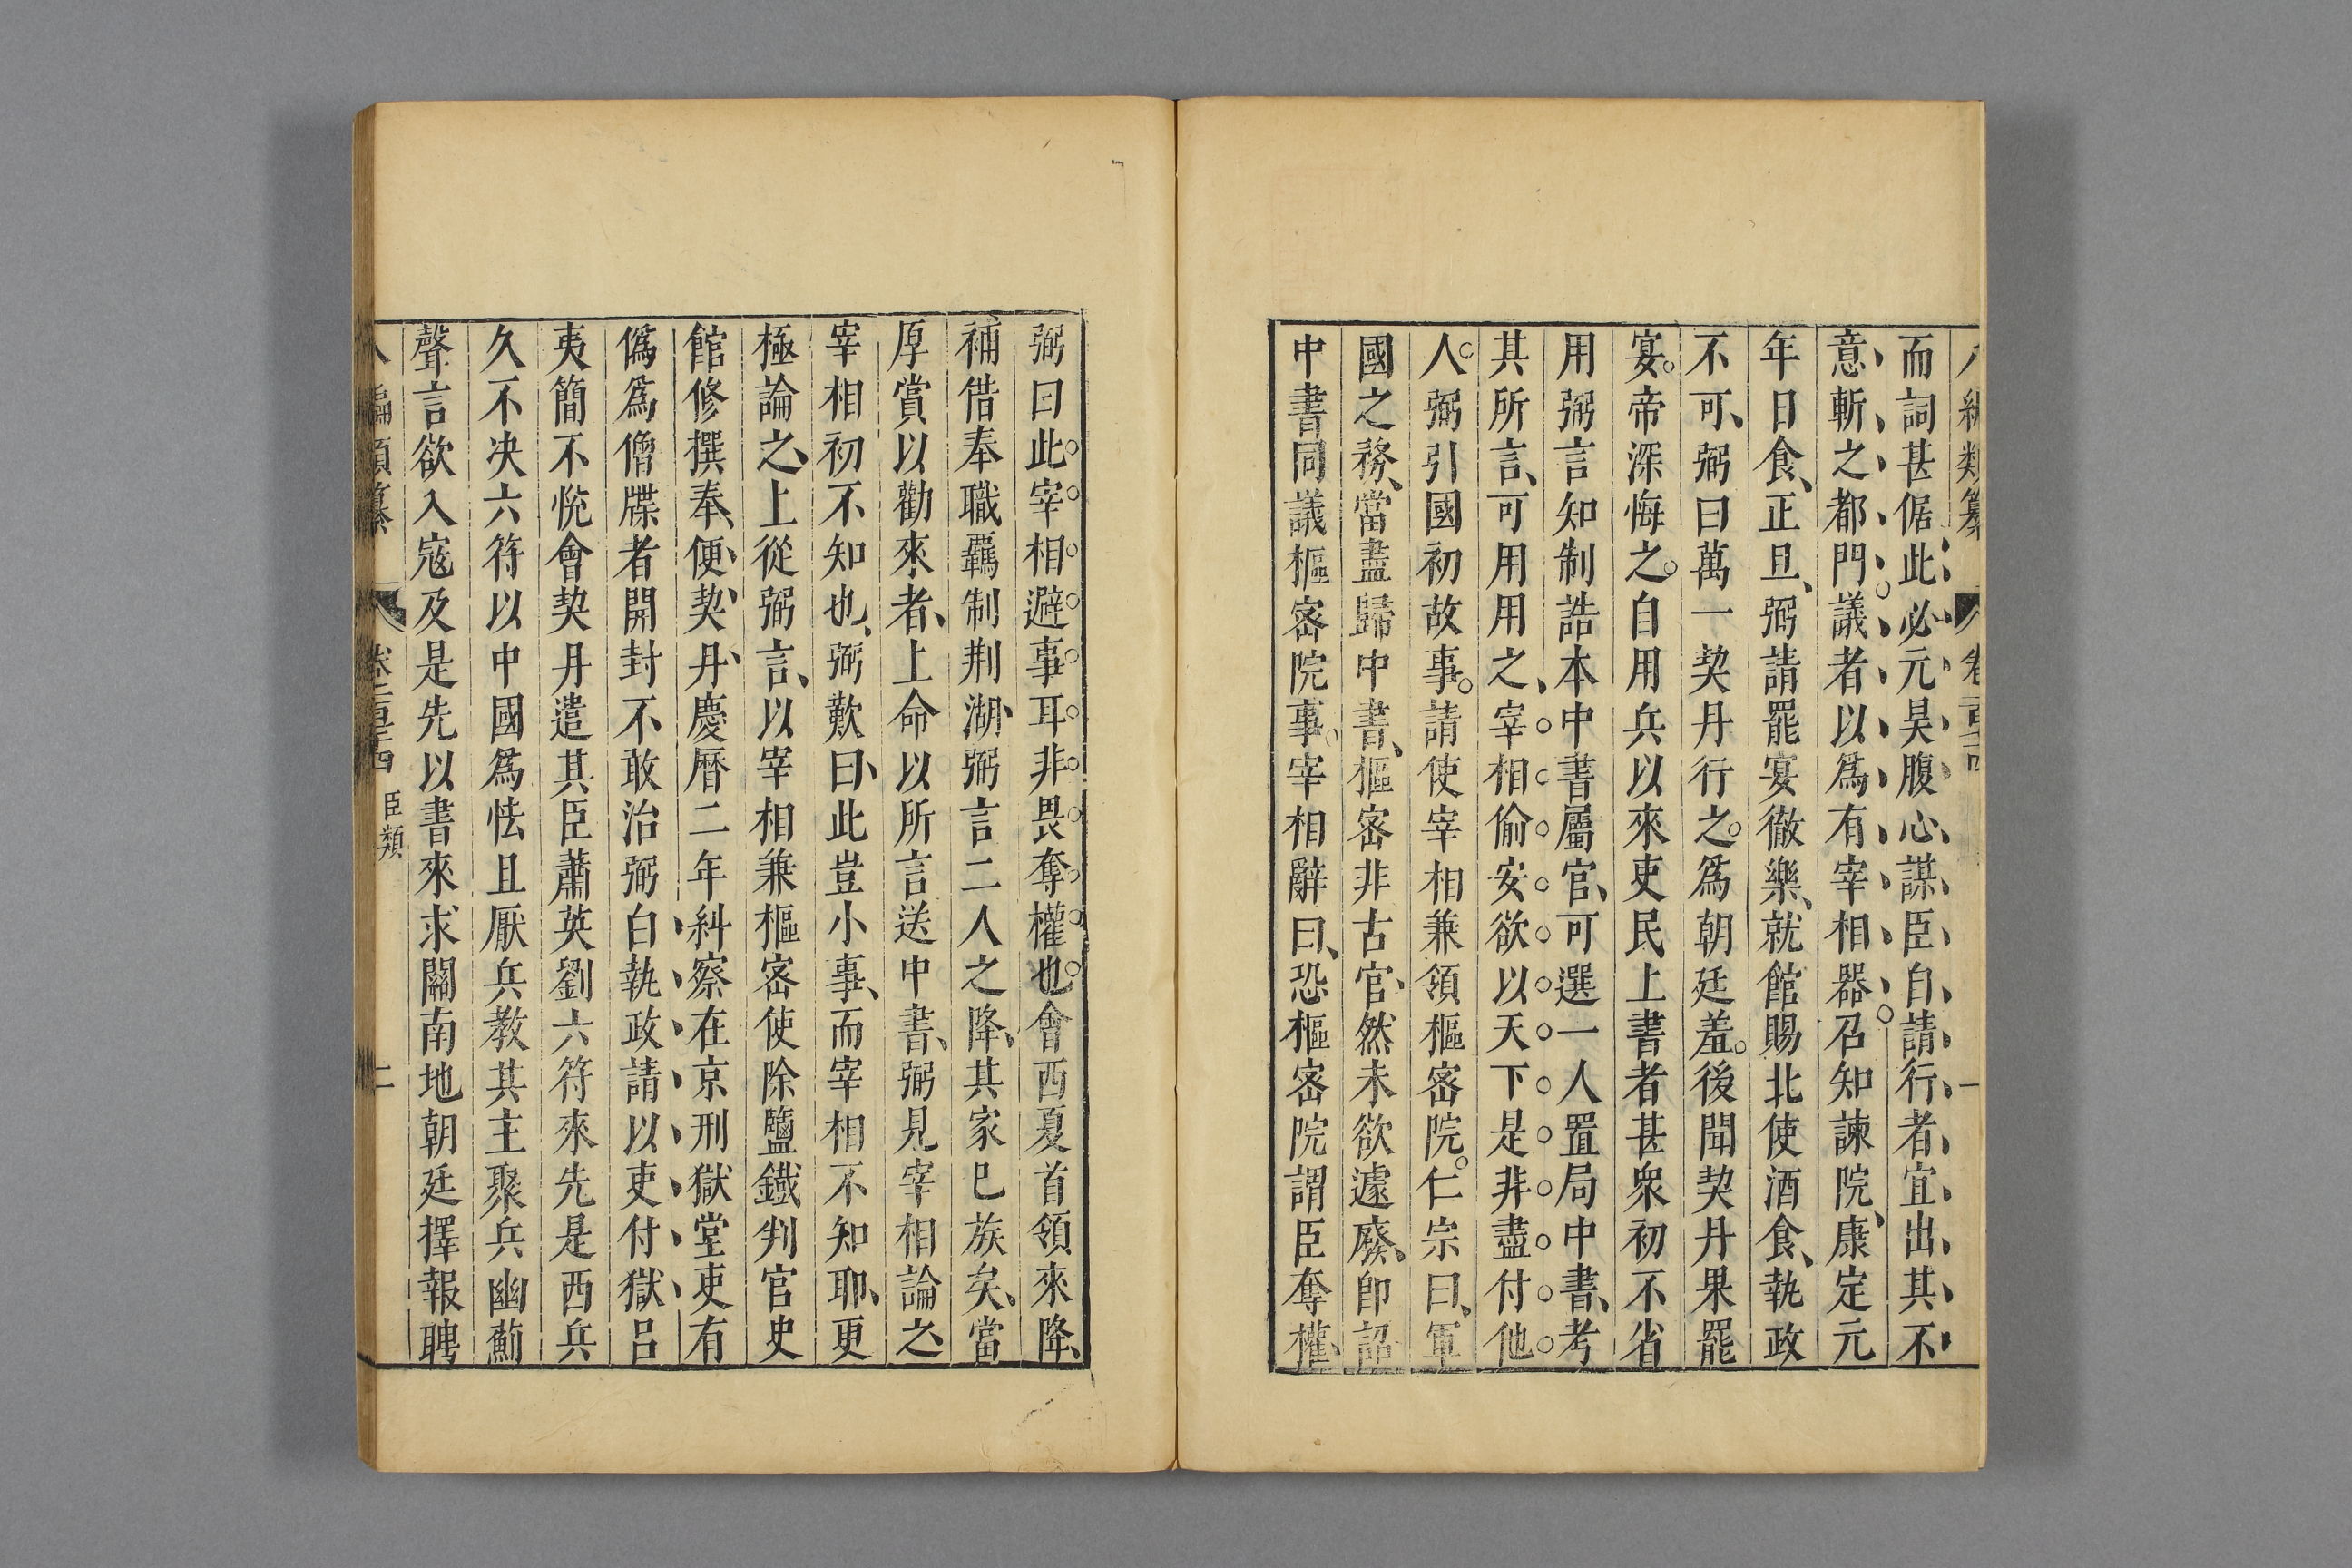 八編類纂 卷二百十四 一
而詞甚倨此必元昊腹心謀臣自請行者宜出其不
意斬之都門議者以爲有宰相器召知諫院康定元
年日食正旦弼請罷宴徹樂就館賜北使酒食執政
不可弼曰萬一契丹行之爲朝廷羞後聞契丹果罷
宴帝深悔之自用兵以來吏民上書者甚衆初不省
用弼言知制誥本中書屬官可選一人置局中書考
其所言可用用之宰相偷安欲以天下是非盡付他
人弼引國初故事請使宰相兼領樞密院仁宗曰軍
國之務當盡歸中書樞密非古官然未欲遽廢卽詔
中書同議樞密院事宰相辭曰恐樞密院謂臣奪權
弼曰此宰相避事耳非畏奪權也會西夏首領來降
補借奉職羈制荆湖弼言二人之降其家已族矣當
厚賞以勸來者上命以所言送中書弼見宰相論之
宰相初不知也弼歎曰此豈小事而宰相不知耶更
極論之上從弼言以宰相兼樞密使除鹽鐵判官史
館修撰奉使契丹慶曆二年糾察在京刑獄堂吏有
僞爲僧牒者開封不敢治弼白執政請以吏付獄呂
夷簡不悅會契丹遣其臣蕭英劉六符來先是西兵
久不决六符以中國爲怯且厭兵教其主聚兵幽薊
聲言欲入寇及是先以書來求關南地朝廷擇報聘
八編類纂 卷二百十四 臣類 二